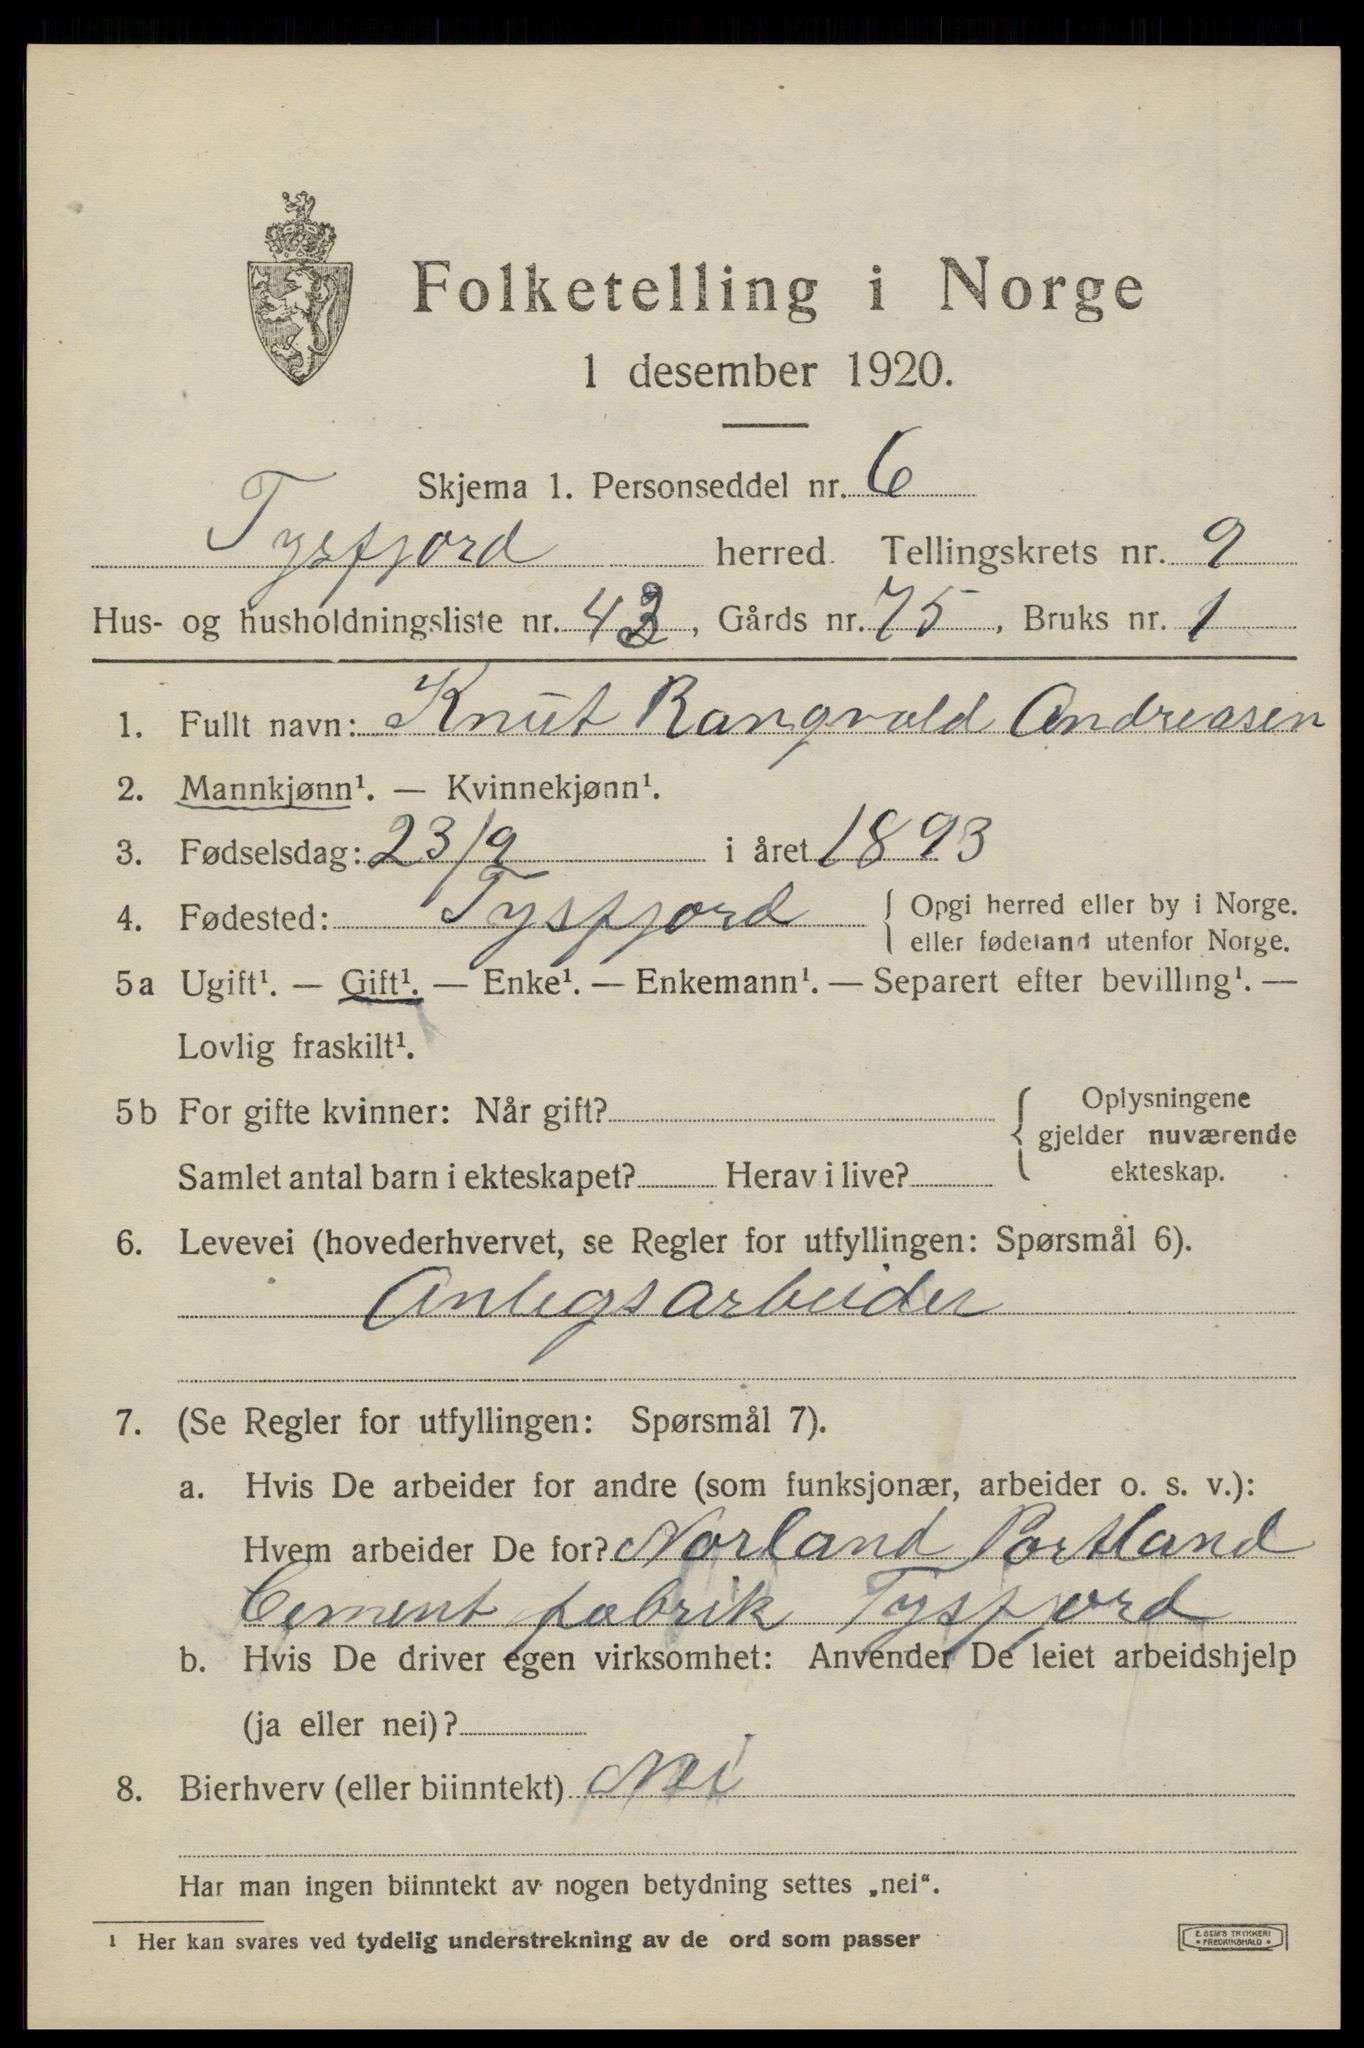 Folketelling i Norge
1 desember 1920.
Skjema 1. Personseddel nr. 6
Tysfjord herred. Tellingskrets nr. 9
Hus- og husholdningsliste nr. 43, Gårds nr. 75, Bruks nr. 1
1. Fullt navn: Knut Rangvald Andreasen
2. Mannkjønn¹. — Kvinnekjønn¹.
3. Fødselsdag: 23/9 i året 1893
4. Fødested: Tysfjord { Opgi herred eller by i Norge.
eller fødeland utenfor Norge.
5a Ugift¹. — Gift¹. — Enke¹. — Enkemann¹. — Separert efter bevilling¹. —
Lovlig fraskilt¹.
5b For gifte kvinner: Når gift? { Oplysningene
gjelder nuværende
Samlet antal barn i ekteskapet? Herav i live? ekteskap.
6. Levevei (hovederhvervet, se Regler for utfyllingen: Spørsmål 6).
Anlegsarbeider
7. (Se Regler for utfyllingen: Spørsmål 7).
a. Hvis De arbeider for andre (som funksjonær, arbeider o. s. v.):
Hvem arbeider De for? Norland Portland
Cement fabrik Tysfjord
b. Hvis De driver egen virksomhet: Anvender De leiet arbeidshjelp
(ja eller nei)?
8. Bierhverv (eller biinntekt) Nei
Har man ingen biinntekt av nogen betydning settes „nei“.
¹ Her kan svares ved tydelig understrekning av de ord som passer
E. SEM'S TRYKKERI
FREDRIKSHALD